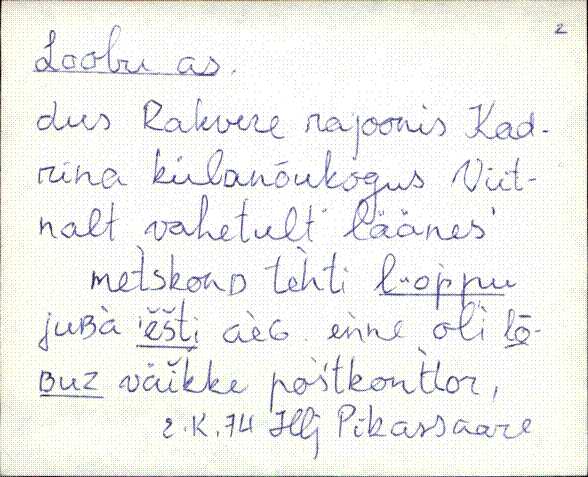 2
Loobu as.
dus Rakvere rajoonis Kad-
rina külanõukogus Viit-
nalt vahetult läänes
mètskonᴅ tèhti l·oòppu
juʙà 'èšti aèɢ. eǹne oli lō-
ʙuz väìkke pos̀tkont̀tor,
E.K. 74 Hlj Pikassaare